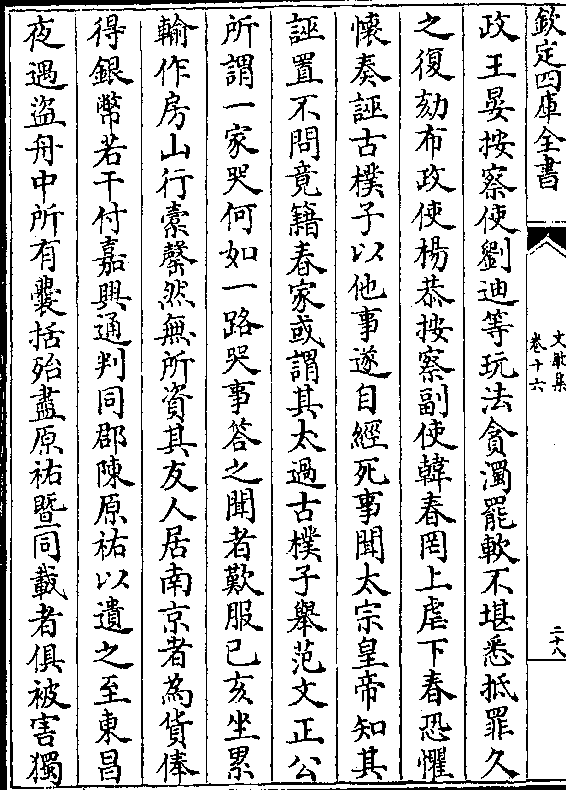 欽定四庫全書
文敏集
卷十六
二十八
政王晏按察使劉迪等玩法貪濁罷軟不堪悉抵罪久
之復劾布政使楊恭按察副使韓春罔上虐下春恐懼
懷奏誣古樸子以他事遂自經死事聞太宗皇帝知其
誣置不問竟籍春家或謂其太過古樸子舉范文正公
所謂一家哭何如一路哭事答之聞者歎服已亥坐累
輸作房山行橐罄然無所資其友人居南京者為貨俸
得銀幣若干付嘉興通判同郡陳原祐以遺之至東昌
夜遇盜舟中所有囊括殆盡原祐暨同載者俱被害獨